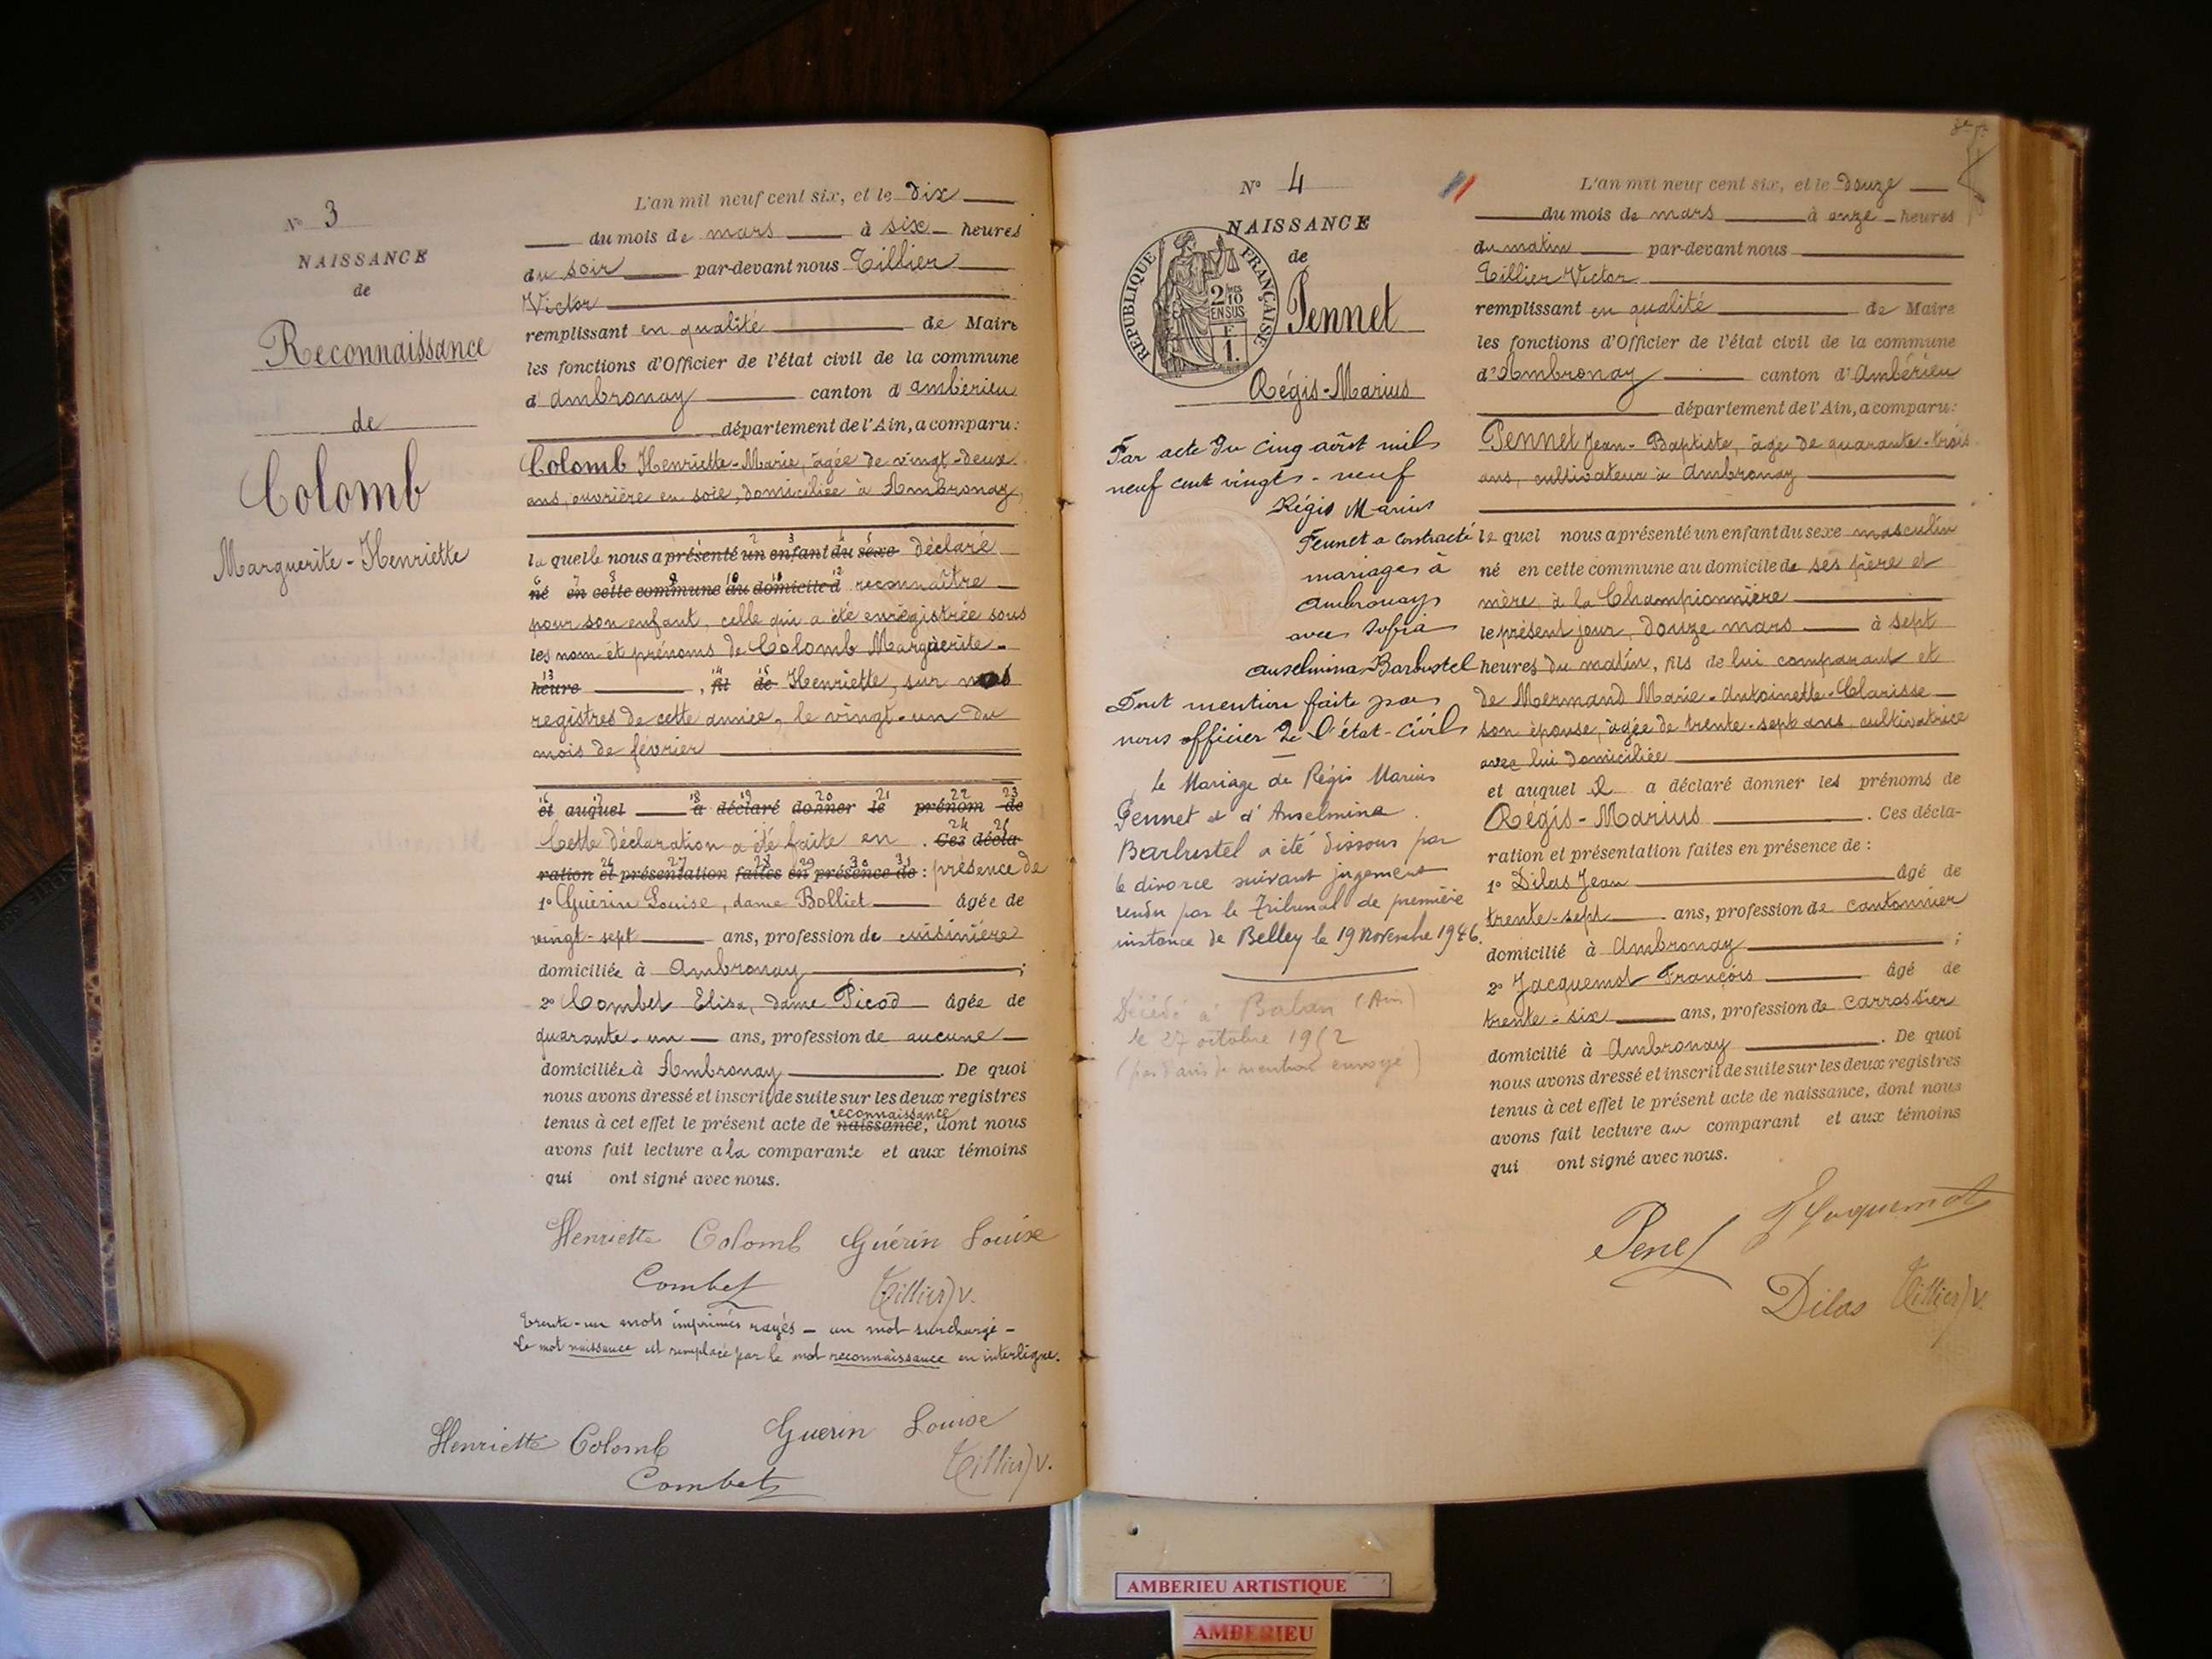 N° 3
NAISSANCE
de
Reconnaissance
de
Colomb
Marguerite-Henriette
L'an mil neuf cent six, et le dix
du mois de mars à six heures
du soir par-devant nous Tillier
Victor
remplissant en qualité de Maire
les fonctions d'Officier de l'état civil de la commune
d'Ambronay canton d'Ambérieu
département de l'Ain, a comparu:
Colomb Henriette-Marie, âgée de vingt-deux
ans, ouvrière en soie, domiciliée à Ambronay,
2 3 4 5
laquelle nous a présenté un enfant du sexe déclaré
6 7 8 9 10 11 12
né en cette commune au domicile d reconnaître
pour son enfant, celle qui a été enregistrée sous
les nom et prénoms de Colomb Marguerite-
13 14 15
heure , fil de Henriette, sur nos
registres de cette année, le vingt-un du
mois de février
16 17 18 19 20 21 22 23
et auquel a déclaré donner le prénom de
24 25
Cette déclaration a été faite en . Ces décla-
26 27 28 29 30 31
ration et présentation faites en présence de : présence de
1° Guérin Louise, dame Bolliet âgée de
vingt-sept ans, profession de cuisinière
domiciliée à Ambronay ;
2° Combet Elisa, dame Picod âgée de
quarante-un ans, profession de aucune
domiciliée à Ambronay . De quoi
nous avons dressé et inscrit de suite sur les deux registres
reconnaissance
tenus à cet effet le présent acte de naissance, dont nous
avons fait lecture à la comparante et aux témoins
qui ont signé avec nous.
Henriette Colomb Guérin Louise
Combet Tillier V.
Trente-un mots imprimés rayés - un mot surchargé -
Le mot naissance est remplacé par le mot reconnaissance en interligne.
Henriette Colomb Guerin Louise
Combet Tillier V.
N° 4
NAISSANCE
de
REPUBLIQUE FRANÇAISE
2 10
EN SUS
F
1.
Pennet
Régis-Marius
Par acte du cinq août mil
neuf cent vingt-neuf
Régis Marius
Pennet a contracté
mariage à
Ambronay
avec Sofia
Anselmina Barbustel
Dont mention faite par
nous officier de l'état-civil
Le Mariage de Régis Marius
Pennet et d'Anselmina
Barbustel a été dissous par
le divorce suivant jugement
rendu par le Tribunal de première
instance de Belley le 19 novembre 1946.
Décédé à Balan (Ain)
le 27 octobre 1962
(pas d'avis de mention envoyé)
L'an mil neuf cent six, et le douze
du mois de mars à onze heures
du matin par-devant nous
Tillier Victor
remplissant en qualité de Maire
les fonctions d'Officier de l'état civil de la commune
d'Ambronay canton d'Ambérieu
département de l'Ain, a comparu:
Pennet Jean-Baptiste, âgé de quarante-trois
ans, cultivateur à Ambronay
lequel nous a présenté un enfant du sexe masculin
né en cette commune au domicile de ses père et
mère, à la Championnière
le présent jour, douze mars à sept
heures du matin, fils de lui comparant et
de Mermand Marie-Antoinette-Clarisse
son épouse, âgée de trente-sept ans, cultivatrice
avec lui domiciliée
et auquel il a déclaré donner les prénoms de
Régis-Marius . Ces décla-
ration et présentation faites en présence de :
1° Dilas Jean âgé de
trente-sept ans, profession de cantonnier
domicilié à Ambronay ;
2° Jacquemot François âgé de
trente-six ans, profession de carrossier
domicilié à Ambronay . De quoi
nous avons dressé et inscrit de suite sur les deux registres
tenus à cet effet le présent acte de naissance, dont nous
avons fait lecture au comparant et aux témoins
qui ont signé avec nous.
Penet Jaquemot
Dilas Tillier V.
AMBERIEU ARTISTIQUE
AMBERIEU